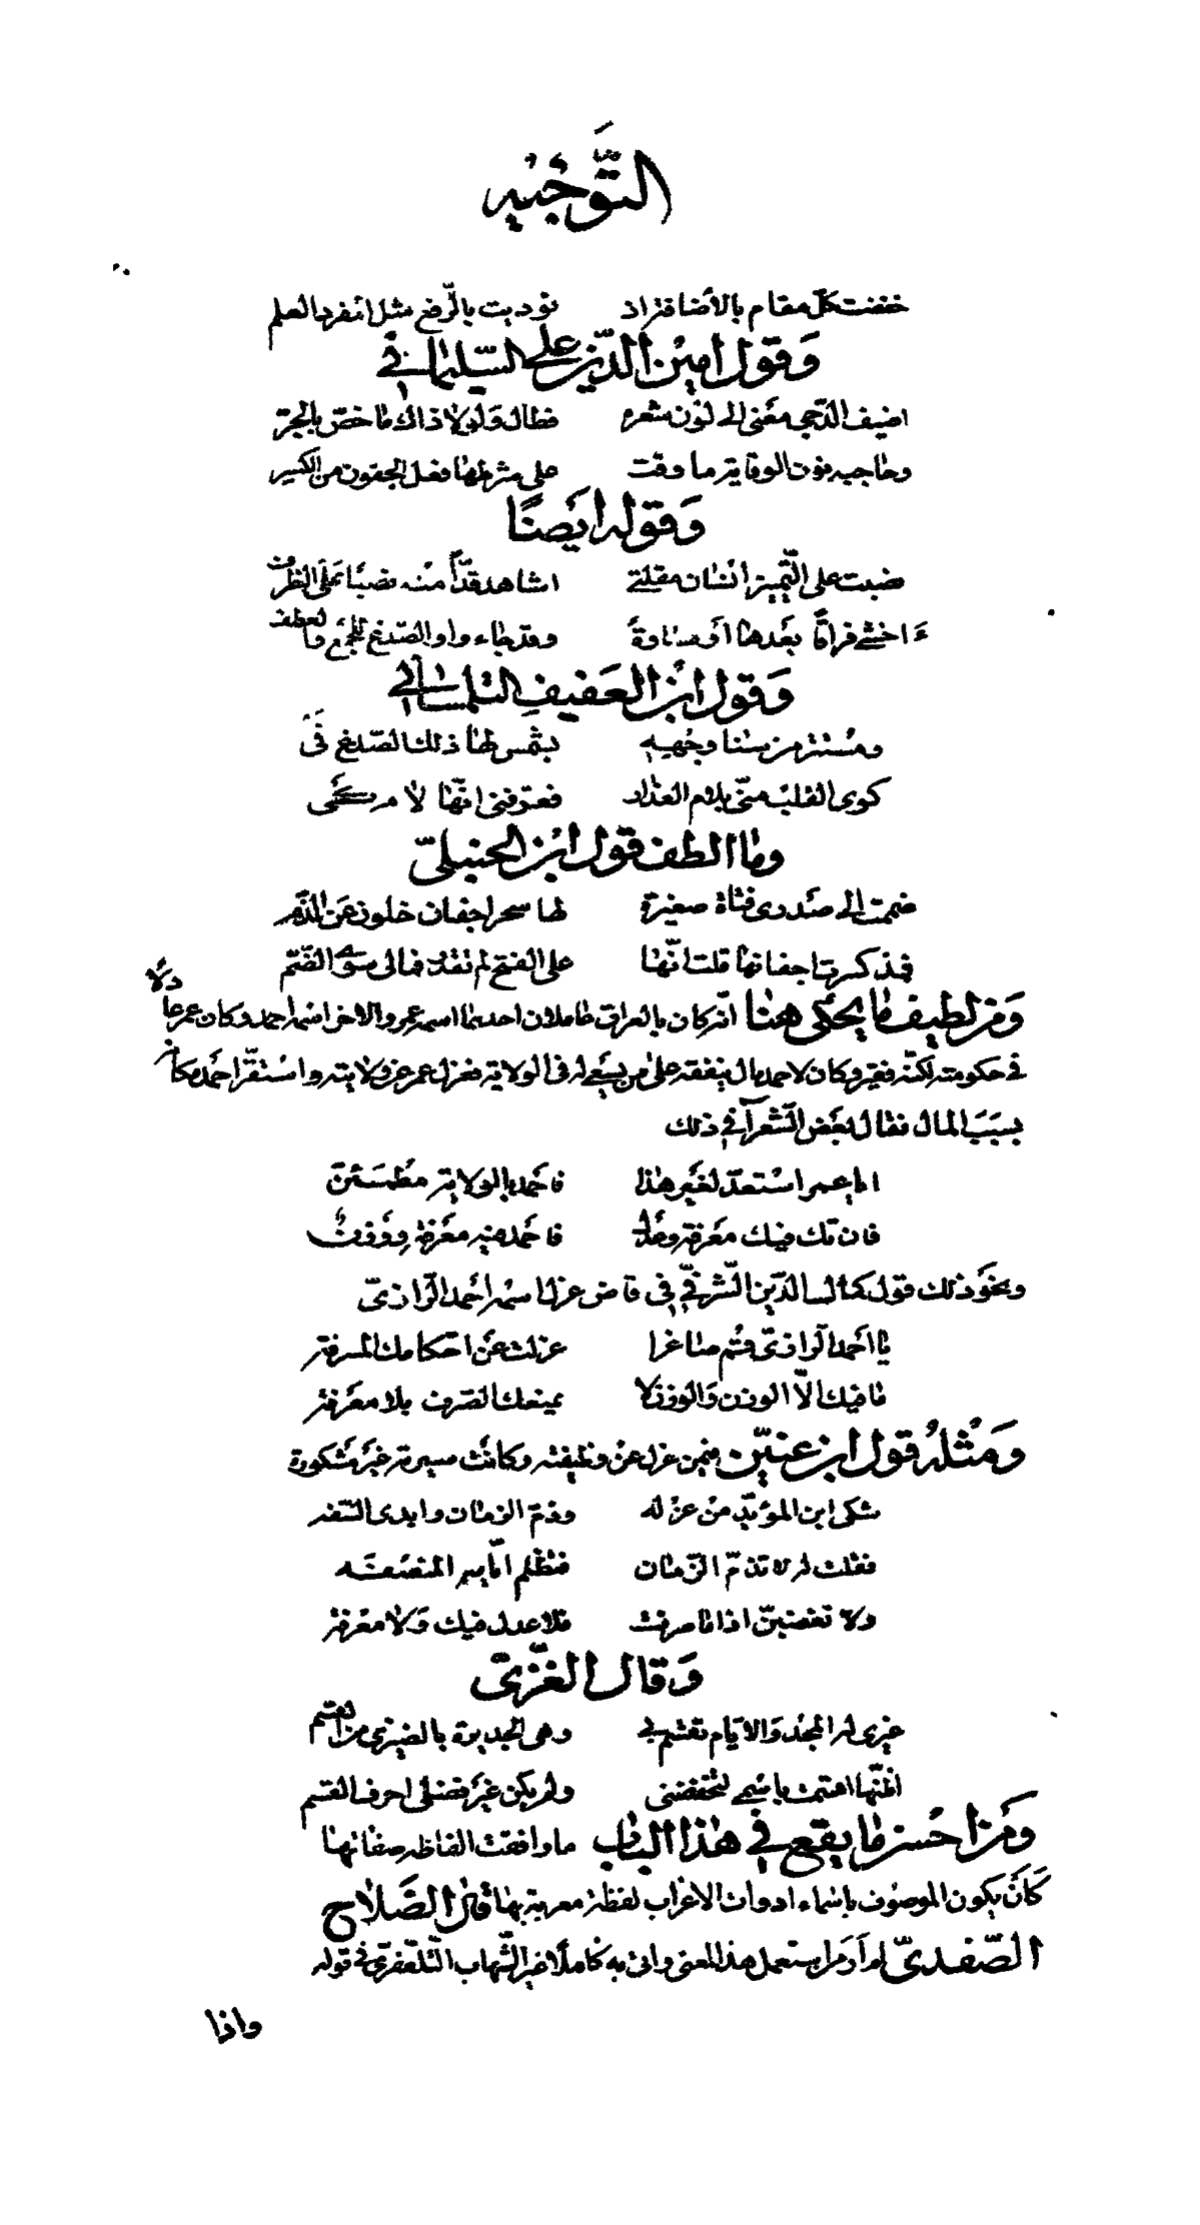 التَّوْجيْه
خفضت كلّ مقام بالأضافة اذ نوديت بالرّفع مثل المفرد العلم
وَقول امين الدّين علي السّليماني
اضيف الدّجي معَنى الى لوْن شعره فطال وَلولا ذاك ما خصّ بالجرّ
وحاجبه نون الوقاية ما وقت على شرطها فعل الجفون من الكسر
وَقوله ايَضًا
نصبت على التّمييز انسان مقلتي اشاهد قدّاً منْه نصبًا على الظرف
ءَاخشى فراقاً بعَدها اوْ مساوةً وقد جاء واو الصّدغ للجمْع والعطف
وَقول ابْن العَفيفِ التلمساني
ومُستتر من سنا وجْهه بشمْس لها ذلك الصّدغ فَىْ
كوى القلبَ منّى بلام العذار فعرّفنى انّها لامر كَى
وما الطف قول ابْن الحنبليّ
ضممت الى صَدرى فتاة صغيرة لها سحر اجفان خلون عَن الذّم
فمذ كسرتها اجفانها قلت انّها على الفتح لم تقدر فمالى سوى الضّم
وَمن لطيف ما يحْكى هنا انّه كان بالعراق عاملان احدهما اسمه عمر والاخر اسْمه احمد وكان عمر عادلاً
فى حكومته لكنّه فقير وكان لاحمد مال ينفقه على من يسْعى له فى الولاية فعزل عمر عن ولايته واسْتقرّ احْمد مكانه
بسبَبَ المال فقال بعَض الشّعرآء فى ذلك
ايا عمر اسْتعدّ لغيْر هذا فاحْمد بالولاية مطْمَئنّ
فان تك فيك معَرفة وعدْل فاحْمد فيه معَرفة ووَزنٌ
ونحوَ ذلك قول كمال الدّين الشّرفيّ فى قاض عزل اسمه احْمد الرّازىّ
يا احْمد الرّازىّ قُم صاغرا عزلت عَن احكامك المسرفة
ما فيك الّا الوزن وَالوزن لا يمنعك الصّرف بلا معَرفة
وَمثْلهُ قول ابن عنيّن فيمن عزل عنْ وظيفته وكانَت سيرته غيرَ مَشكورة
شكى ابن المؤيّد منْ عزْله وذمّ الزمان وابدى السّفه
فقلت له لا تذمّ الزّمان فتظْلم ايّامه المنصفَه
ولا تغضبنّ اذا ما صرفْت فلا عدل فيك وَلا معْرفة
وَقال الغزّىّ
غيرى له المجْد وَالايّام تقسْم لى وهى الجديرة بالضيزى من القسم
اظنّها اهتمّت باسْمى لتخفضنى ولم يكن غيْر فضلى احرف القسم
وَمن احْسن ما يقع فى هذا الباب ما وافقت الفاظه صفاتها
كَأن يكون الموصوف باسْماء ادوات الاعْراب لفظة معربة بها قال الصَّلاح
الصّفدىّ لم ارَ من استعمل هذا المعنى واتى به كاملًا غير الشّهاب التّلعفرىّ فى قوله
واذا